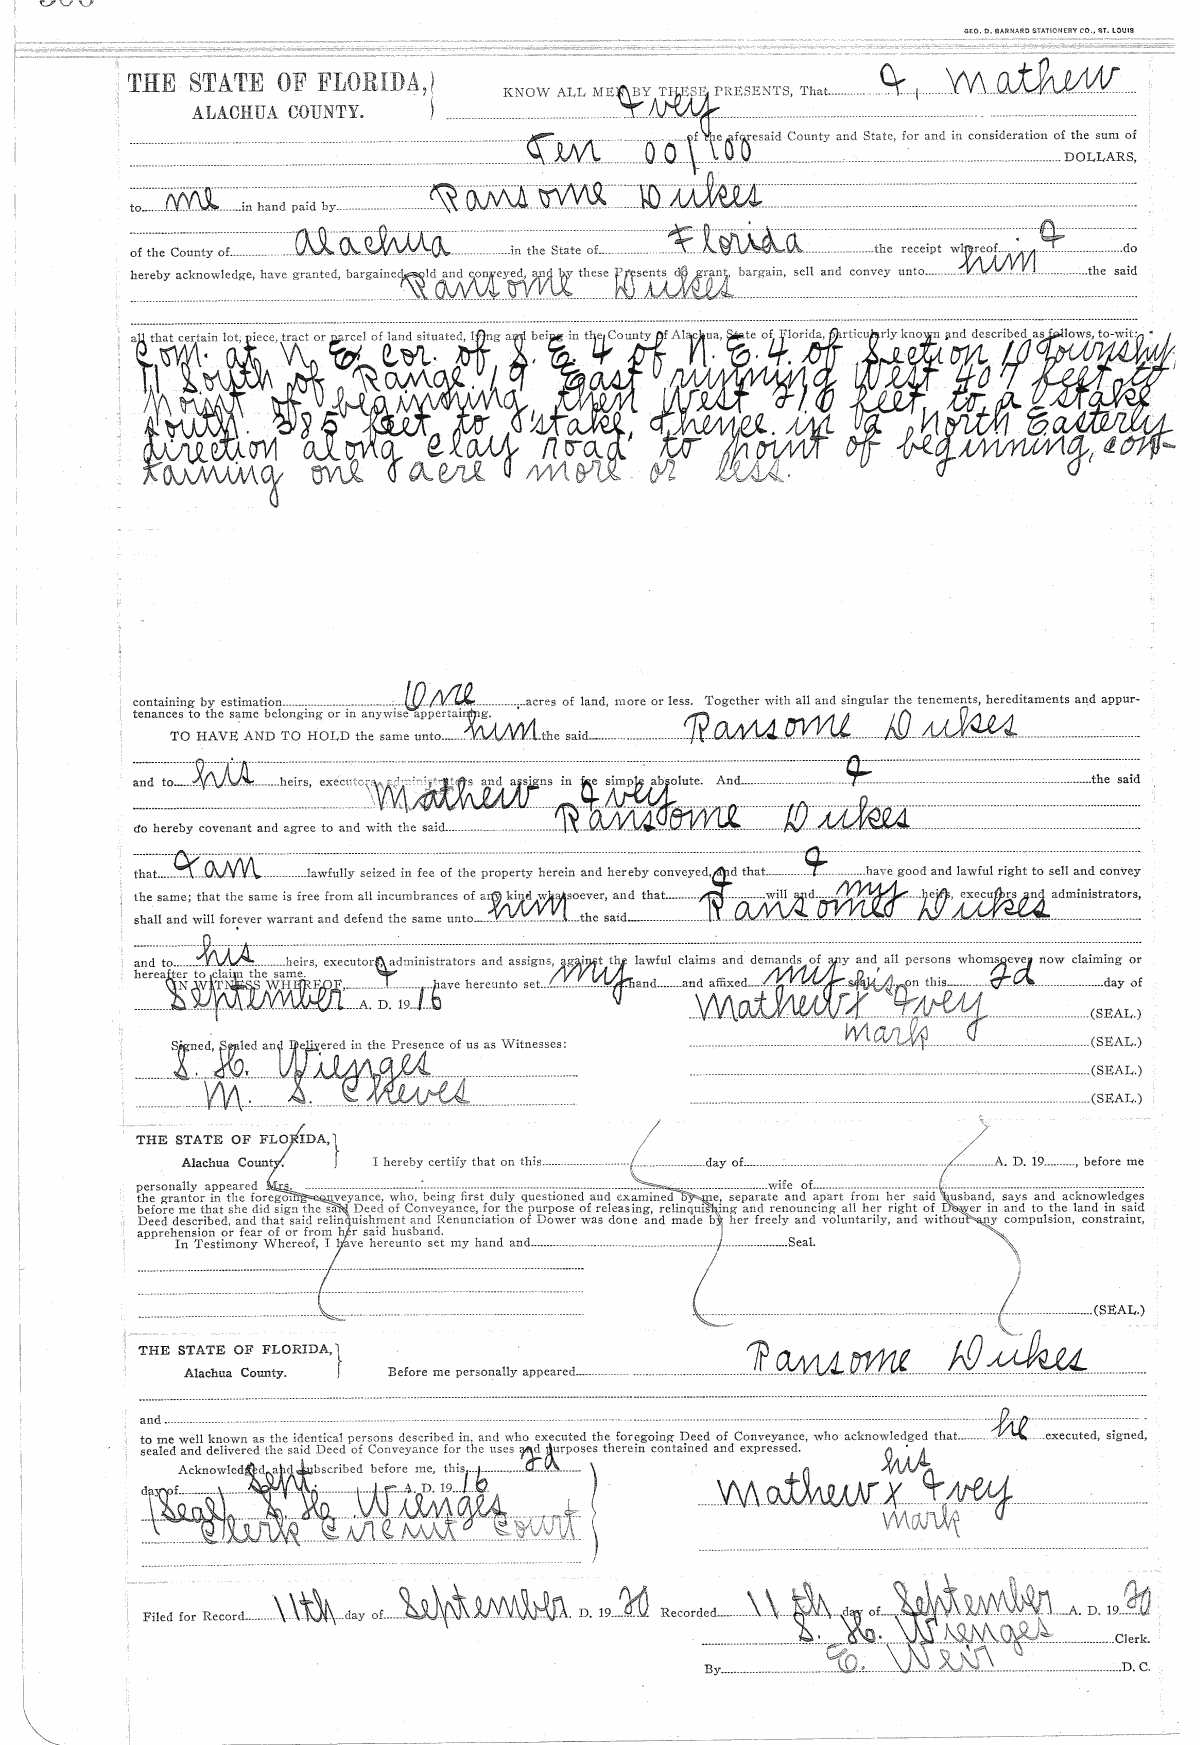 GEO. D. BARNARD STATIONERY CO., ST. LOUIS
THE STATE OF FLORIDA,
ALACHUA COUNTY.
KNOW ALL MEN BY THESE PRESENTS, That I, Mathew
Ivey
of the aforesaid County and State, for and in consideration of the sum of
Ten 00/100 DOLLARS,
to me in hand paid by Ransome Dukes
of the County of Alachua in the State of Florida the receipt whereof I do
hereby acknowledge, have granted, bargained, sold and conveyed, and by these Presents do grant, bargain, sell and convey unto him the said
Ransome Dukes
all that certain lot, piece, tract or parcel of land situated, lying and being in the County of Alachua, State of Florida, particularly known and described as follows, to-wit:
Com. at N. E. cor. of S. E. 4 of N. E. 4. of Section 10 Township
11 South of Range 19 East running West 407 feet to
point of beginning, then West 210 feet to a stake
South 385 feet to stake, thence in a North Easterly
direction along clay road to point of beginning, con-
taining one acre more or less.
containing by estimation One acres of land, more or less. Together with all and singular the tenements, hereditaments and appur-
tenances to the same belonging or in anywise appertaining.
TO HAVE AND TO HOLD the same unto him the said Ransome Dukes
and to his heirs, executors, administrators and assigns in fee simple absolute. And I the said
Mathew Ivey
do hereby covenant and agree to and with the said Ransome Dukes
that I am lawfully seized in fee of the property herein and hereby conveyed, and that I have good and lawful right to sell and convey
the same; that the same is free from all incumbrances of any kind whatsoever, and that I will and my heirs, executors and administrators,
shall and will forever warrant and defend the same unto him the said Ransome Dukes
and to his heirs, executors, administrators and assigns, against the lawful claims and demands of any and all persons whomsoever now claiming or
hereafter to claim the same.
IN WITNESS WHEREOF, I have hereunto set my hand and affixed my seal on this 2d day of
September A. D. 1916
his
Mathew x Ivey (SEAL.)
mark (SEAL.)
Signed, Sealed and Delivered in the Presence of us as Witnesses:
S. H. Wienges (SEAL.)
M. S. Cheves (SEAL.)
THE STATE OF FLORIDA,
Alachua County. I hereby certify that on this day of A. D. 19 , before me
personally appeared Mrs. wife of
the grantor in the foregoing conveyance, who, being first duly questioned and examined by me, separate and apart from her said husband, says and acknowledges
before me that she did sign the said Deed of Conveyance, for the purpose of releasing, relinquishing and renouncing all her right of Dower in and to the land in said
Deed described, and that said relinquishment and Renunciation of Dower was done and made by her freely and voluntarily, and without any compulsion, constraint,
apprehension or fear of or from her said husband.
In Testimony Whereof, I have hereunto set my hand and Seal.
(SEAL.)
THE STATE OF FLORIDA,
Alachua County. Before me personally appeared Ransome Dukes
and
to me well known as the identical persons described in, and who executed the foregoing Deed of Conveyance, who acknowledged that he executed, signed,
sealed and delivered the said Deed of Conveyance for the uses and purposes therein contained and expressed.
Acknowledged and subscribed before me, this 2d
day of Sept. A. D. 1916
his
Mathew x Ivey
mark
(Seal) S. H. Wienges
Clerk Circuit Court
Filed for Record 11th day of September A. D. 1920 Recorded 11th day of September A. D. 1920
S. H. Wienges Clerk.
By E. Weir D. C.